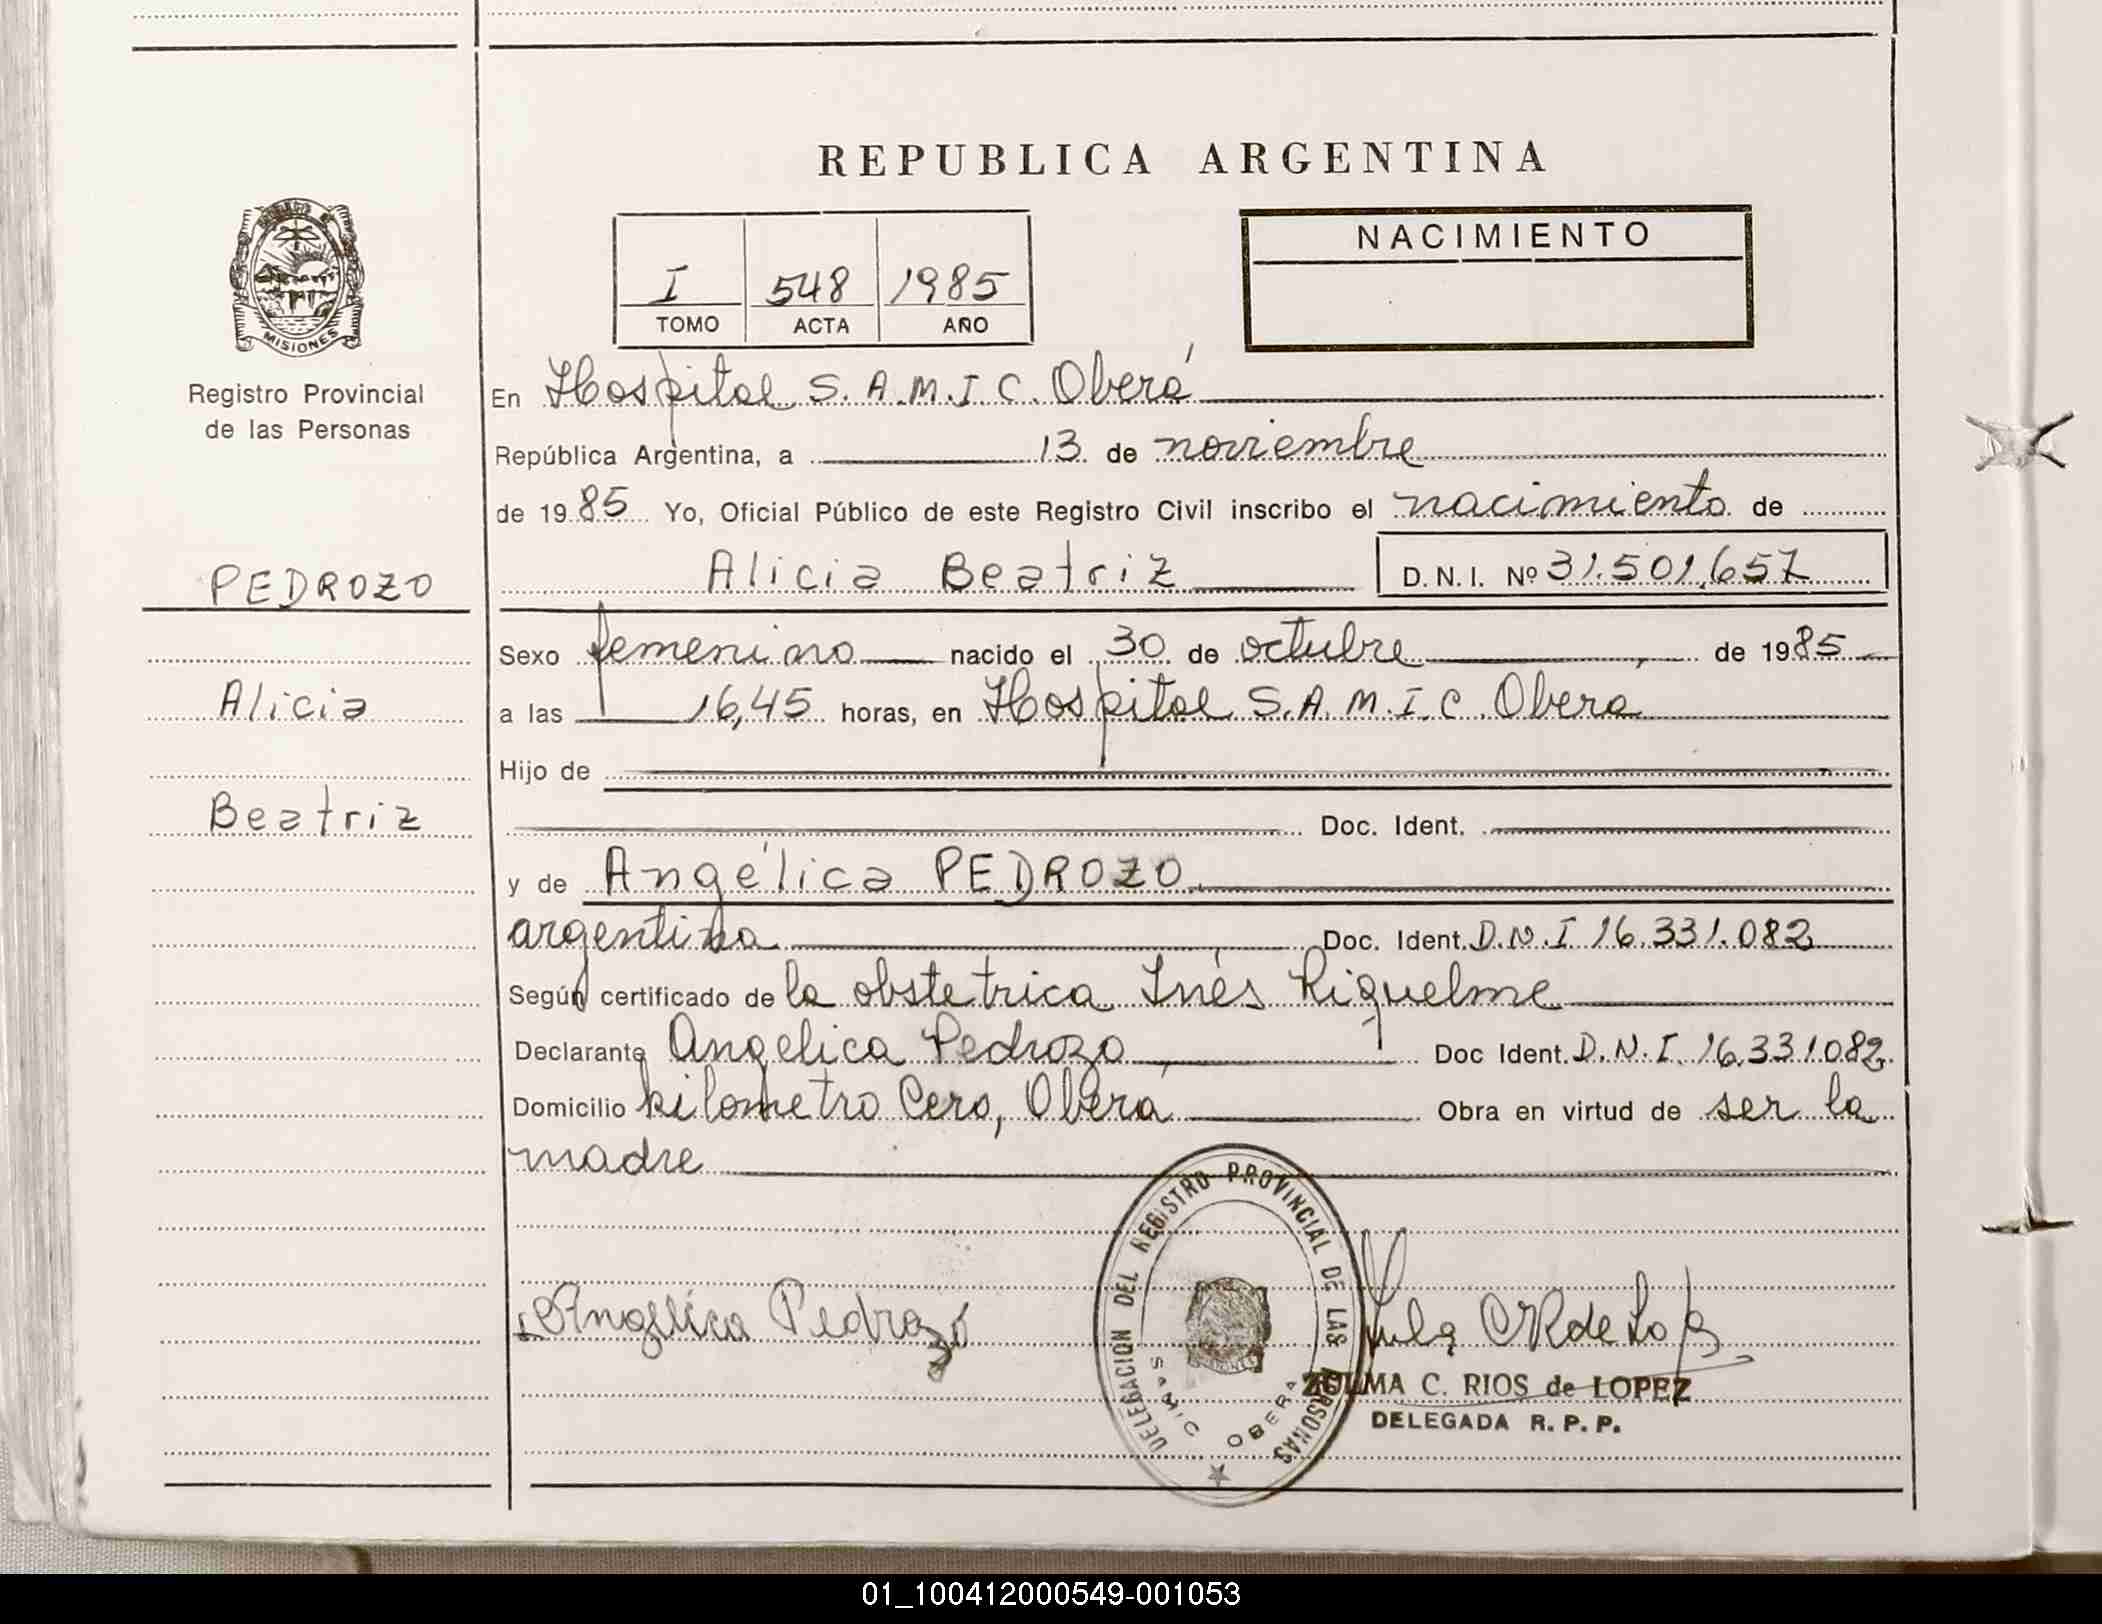 REPUBLICA ARGENTINA
I 548 1985
TOMO ACTA AÑO
NACIMIENTO
MISIONES
Registro Provincial
de las Personas
PEDROZO
Alicia
Beatriz
En Hospital S.A.M.I.C. Oberá
República Argentina, a 13 de noviembre
de 1985 Yo, Oficial Público de este Registro Civil inscribo el nacimiento de
Alicia Beatriz D.N.I. Nº 31.501.657
Sexo femenino nacido el 30 de octubre de 1985
a las 16,45 horas, en Hospital S.A.M.I.C. Oberá
Hijo de
Doc. Ident.
y de Angélica PEDROZO
argentina Doc. Ident. D.N.I 16.331.082
Según certificado de la obstetrica Inés Riquelme
Declarante Angelica Pedrozo Doc Ident. D.N.I. 16.331082
Domicilio kilometro Cero, Oberá Obra en virtud de ser la
madre
DELEGACION DEL REGISTRO PROVINCIAL DE LAS PERSONAS
SAMIC OBERA
Angélica Pedrozo
ZULMA C. RIOS de LOPEZ
DELEGADA R.P.P.
01_100412000549-001053